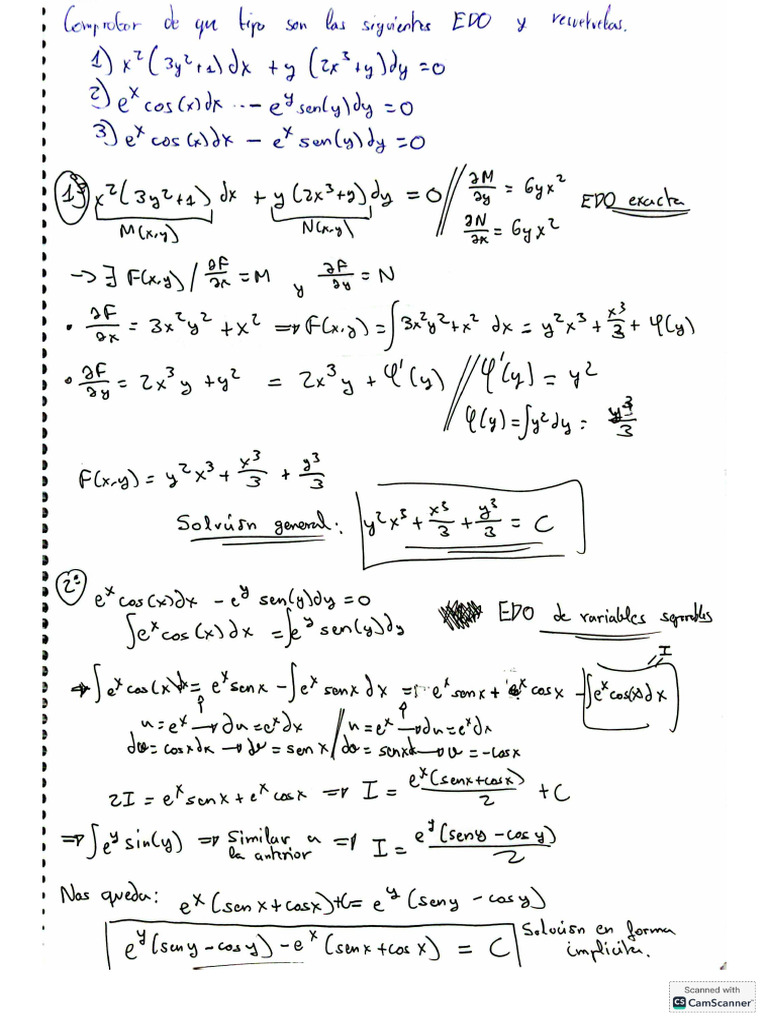 Comprobar de que tipo son las siguientes EDO y resuelvelas.
1) x²(3y²+1)dx + y(2x³+y)dy=0
2) eˣcos(x)dx - e^y sen(y)dy=0
3) eˣcos(x)dx - eˣ sen(y)dy=0
1º) x²(3y²+1)dx + y(2x³+y)dy = 0 // ∂M/∂y = 6yx² EDO exacta
M(x,y) N(x,y) ∂N/∂x = 6yx²
→ ∃ F(x,y) / ∂F/∂x = M y ∂F/∂y = N
• ∂F/∂x = 3x²y²+x² ⟹ F(x,y) = ∫3x²y²+x² dx = y²x³ + x³/3 + φ(y)
• ∂F/∂y = 2x³y + y² = 2x³y + φ'(y) // φ'(y) = y²
φ(y) = ∫y²dy = y³/3
F(x,y) = y²x³ + x³/3 + y³/3
Solución general: y²x³ + x³/3 + y³/3 = C
2º eˣcos(x)dx - e^y sen(y)dy = 0 EDO de variables separables
∫eˣcos(x)dx = ∫e^y sen(y)dy
I
⟹ ∫eˣcos(x)dx = eˣsenx - ∫eˣsenx dx = eˣsenx + eˣcosx - ∫eˣcos(x)dx
u=eˣ → du=eˣdx // u=eˣ → du=eˣdx
dv=cosxdx → v=senx / dv=senxdx → v=-cosx
2I = eˣsenx + eˣcosx ⟹ I = eˣ(senx+cosx)/2 + C
⟹ ∫e^y sin(y) ⟹ Similar a la anterior ⟹ I = e^y(seny - cosy)/2
Nos queda: eˣ(senx + cosx)+C = e^y(seny - cosy)
e^y(seny - cosy) - eˣ(senx + cosx) = C Solución en forma implícita.
Scanned with
CS CamScanner